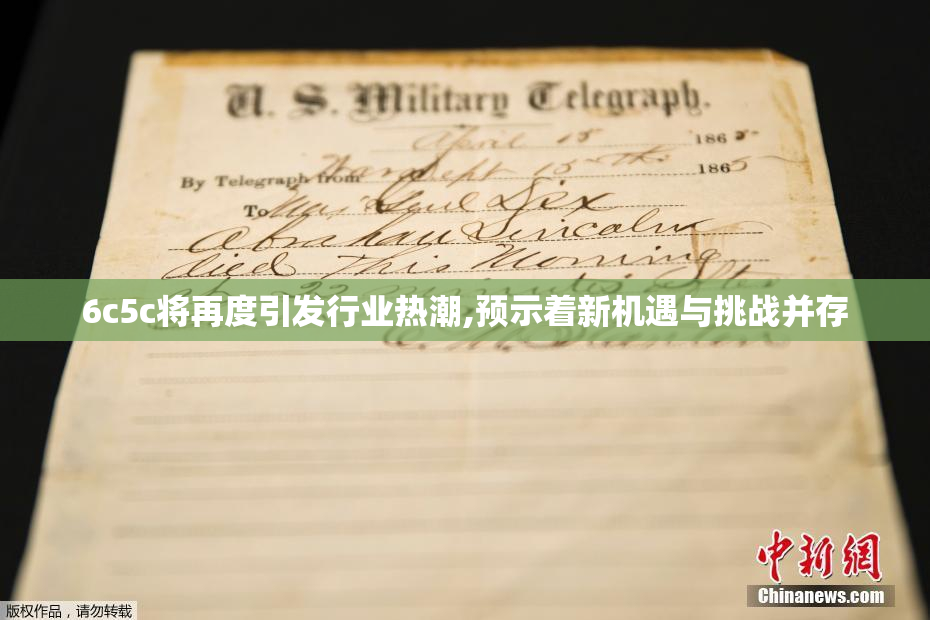 U. S. Military Telegraph.
April 15 1865
By Telegraph from War Dept 15th 1865
To Maj Genl Dix
Abraham Lincoln
died This Morning
at 22 minutes after
6c5c将再度引发行业热潮,预示着新机遇与挑战并存
E. M. Stanton
中新网
Chinanews.com
版权作品，请勿转载